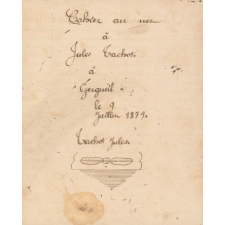 Cahier au net
à
Jules Tachot.
à
Gergueil
le 9
Juillet 1879.
Tachot Jules.